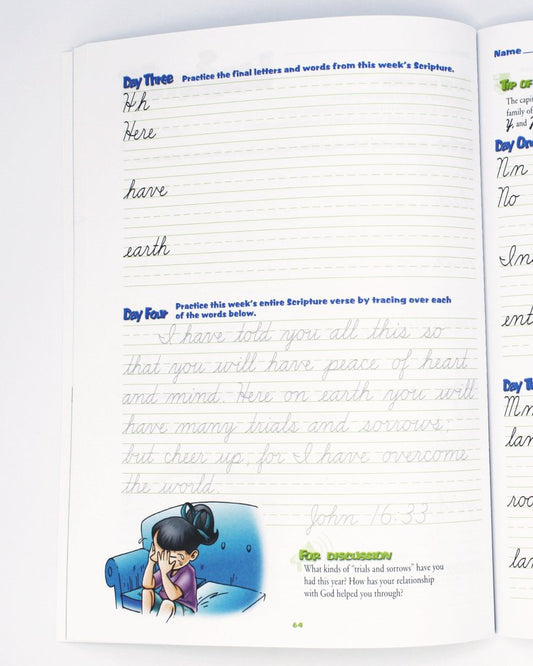 Day Three Practice the final letters and words from this week's Scripture.
Hh
Here
have
earth
Day Four Practice this week's entire Scripture verse by tracing over each
of the words below.
I have told you all this so
that you will have peace of heart
and mind. Here on earth you will
have many trials and sorrows;
but cheer up, for I have overcome
the world.
John 16:33
For Discussion
What kinds of "trials and sorrows" have you
had this year? How has your relationship
with God helped you through?
64
Name
Tip of
The capi
family of
Y, and
Day On
Nn
No
In
ent
Day T
Mm
lan
roo
lan